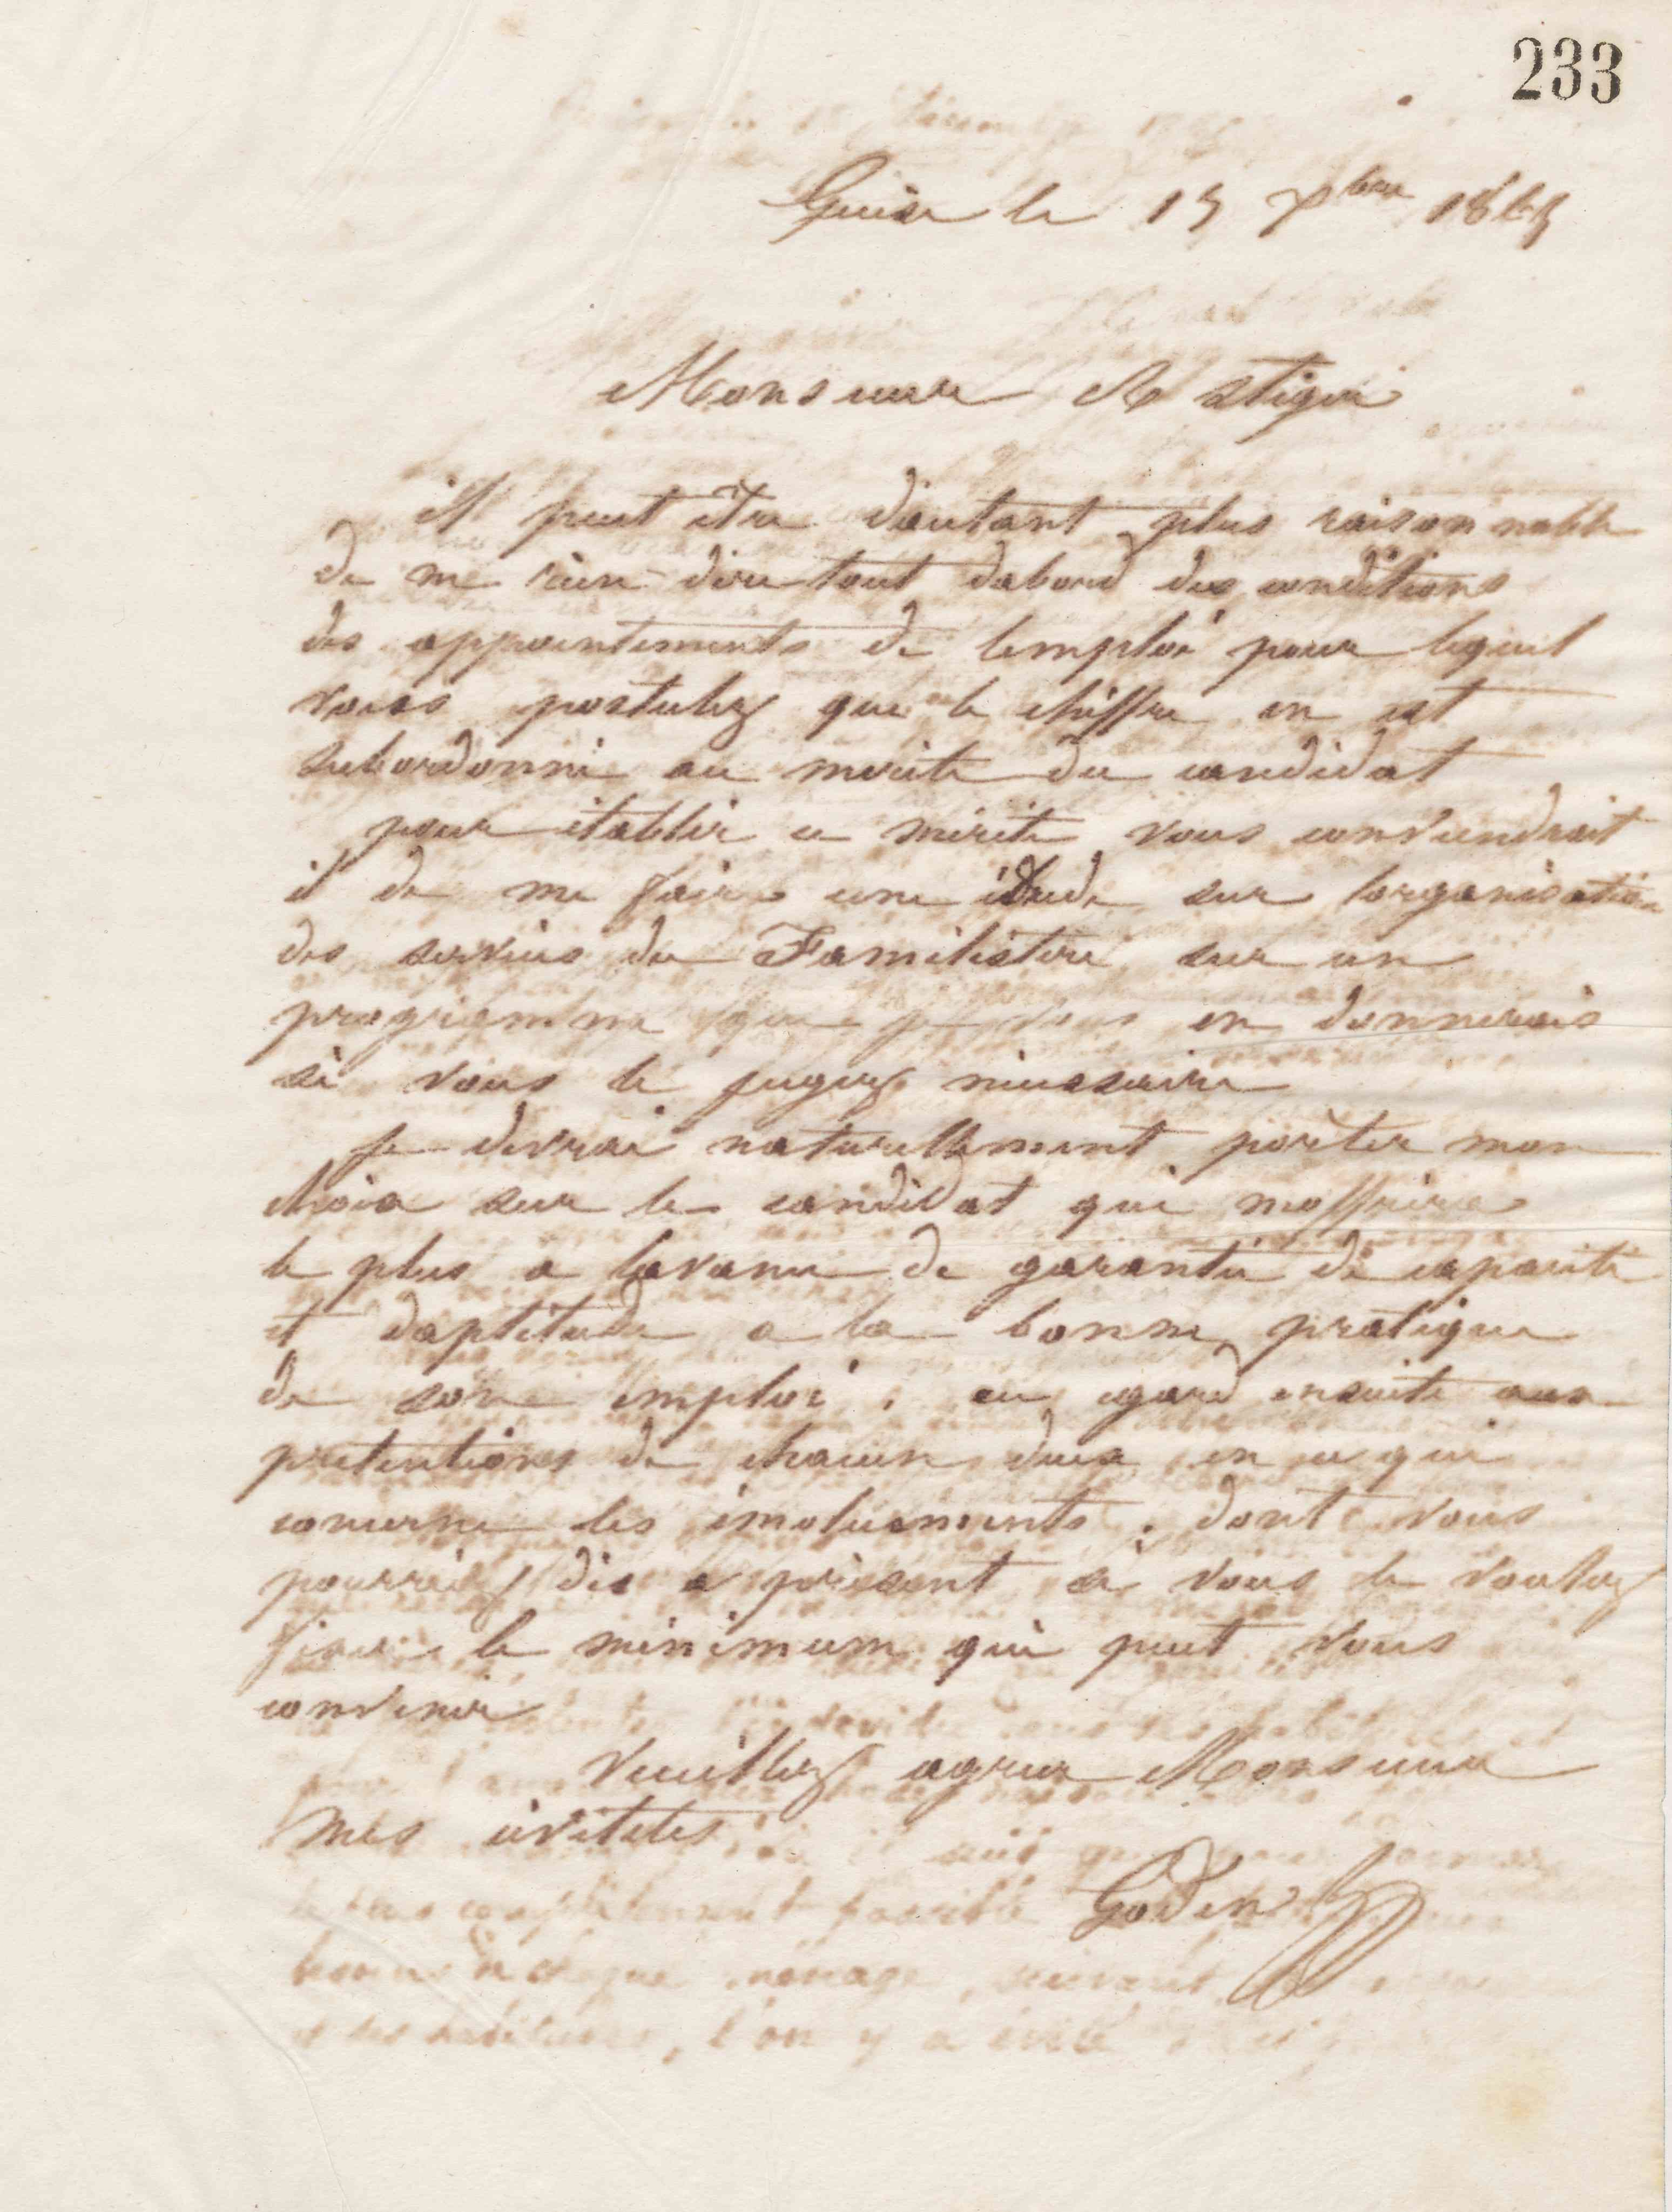 233
Guise le 15 Xbre 1865
Monsieur
il peut être d'autant plus raisonnable
de me rien dire tout dabord des conditions
des appointements de lemploi pour lequel
vous postulez que le chiffre en est
subordonné au merite du candidat
pour établir ce mérite vous conviendrait
il de me faire une étude sur lorganisation
des services du Familistère sur un
programme que je vous en donnerais
si vous le jugez nécessaire
je devrai naturellement porter mon
choix sur le candidat qui moffrira
le plus a lavance de garantie de capacité
et daptitude a la bonne pratique
de son emploi . eu egard ensuite aux
pretentions de chacun deux en ce qui
concerne les émoluements . dont vous
pourriez dès a présent si vous le voulez
fixer le minimum qui peut vous
convenir
Veuillez agreer Monsieur
mes civilités
Godin